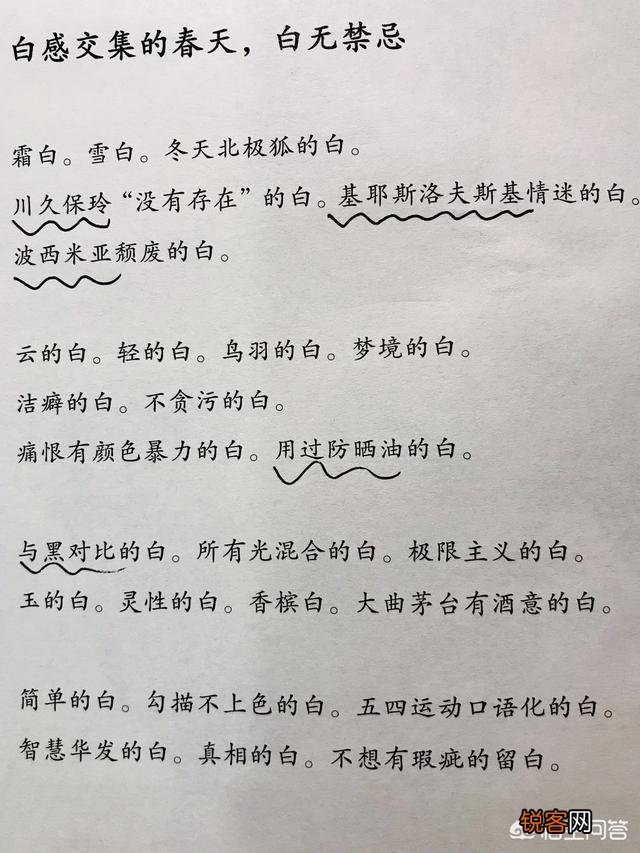 白感交集的春天，白无禁忌
霜白。雪白。冬天北极狐的白。
川久保玲“没有存在”的白。基耶斯洛夫斯基情迷的白。
波西米亚颓废的白。
云的白。轻的白。鸟羽的白。梦境的白。
洁癖的白。不贪污的白。
痛恨有颜色暴力的白。用过防晒油的白。
与黑对比的白。所有光混合的白。极限主义的白。
玉的白。灵性的白。香槟白。大曲茅台有酒意的白。
简单的白。勾描不上色的白。五四运动口语化的白。
智慧华发的白。真相的白。不想有瑕疵的留白。
锐客网
问答